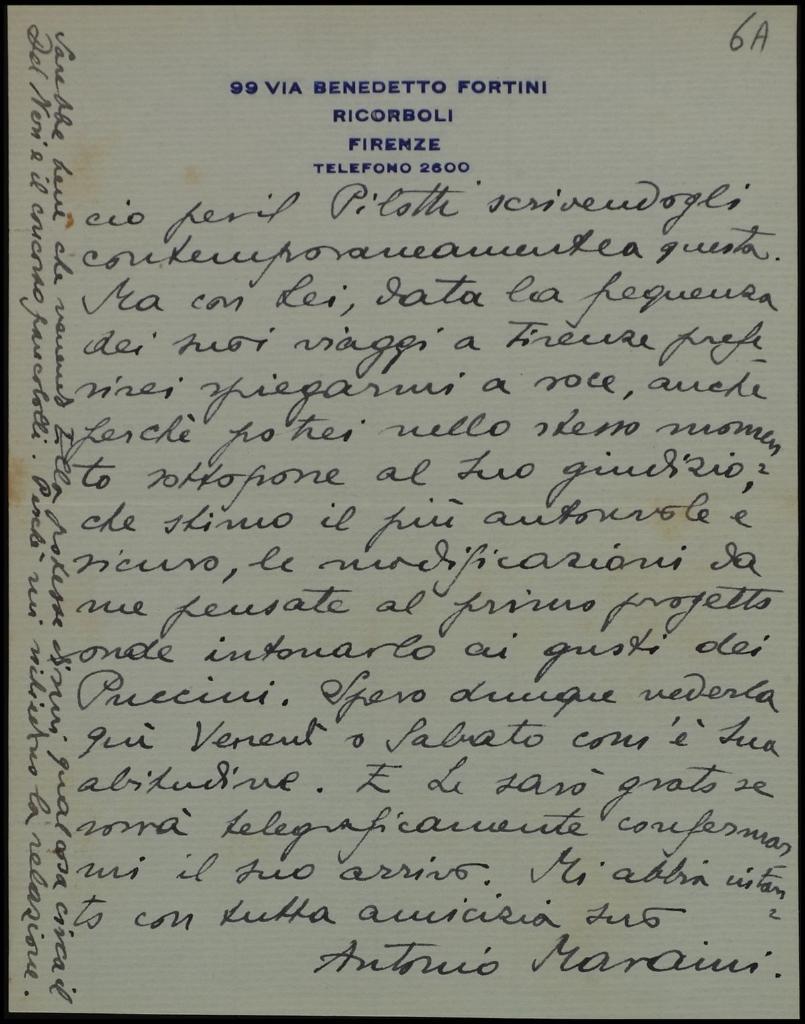 6A
99 VIA BENEDETTO FORTINI
RICORBOLI
FIRENZE
TELEFONO 2600
cio per il Pilotti scrivendogli
contemporaneamente a questa.
Ma con Lei, data la frequenza
dei suoi viaggi a Firenze prefe
rirei spiegarmi a voce, anche
perchè potrei nello stesso momen
to sottoporre al Suo giudizio,
che stimo il più autorevole e
sicuro, le modificazioni da
me pensate al primo progetto
onde intonarlo ai gusti dei
Puccini. Spero dunque vederla
qui Venerdì o Sabato com'è Sua
abitudine. E Le sarò grato se
vorrà telegraficamente confermar
mi il suo arrivo. Mi abbia intan=
to con tutta amicizia suo
Antonio Maraini.
Sarebbe bene che venendo Ella potesse dirmi qualcosa circa il
Del Neri e il concorso pancolotti. Perchè mi richiedono la relazione.